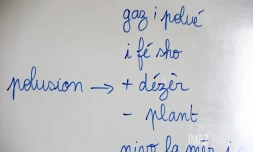 gaz i polué
i fé sho
polusion → + dézèr
- plant
nivo la mèr i